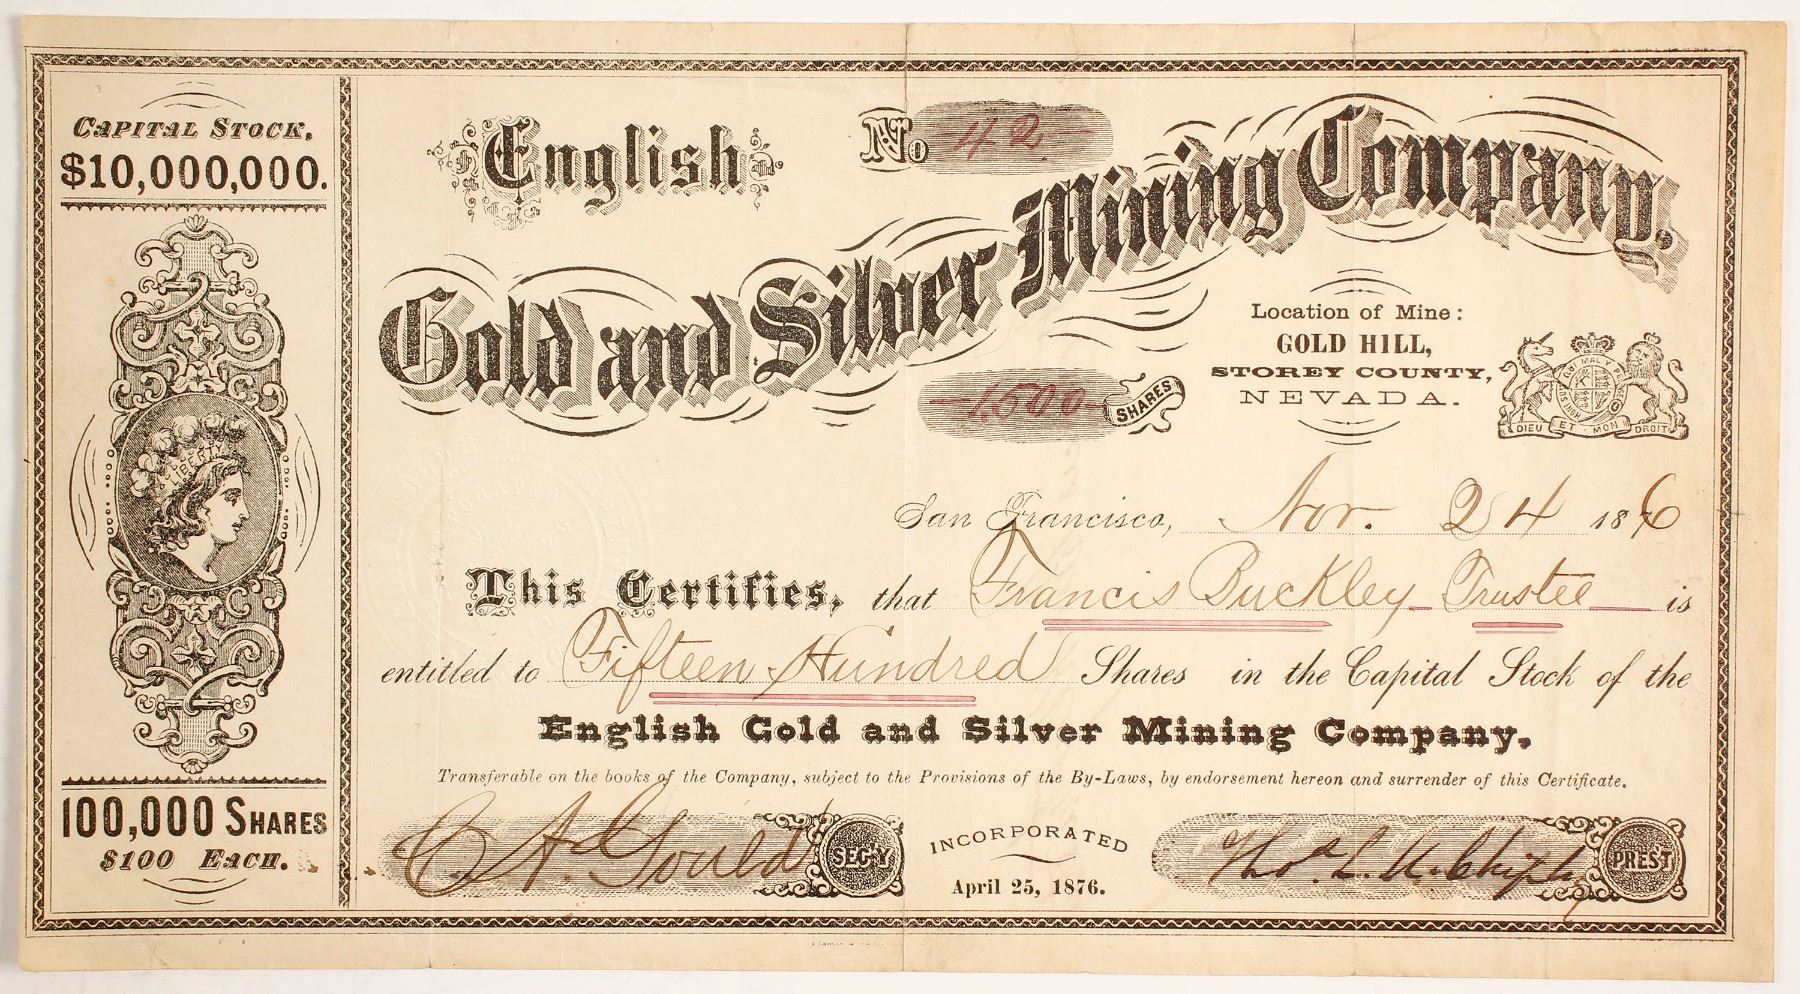 CAPITAL STOCK.
$10,000,000.
LIBERTY
100,000 SHARES
$100 EACH.
English
No 42
Gold and Silver Mining Company.
1,500 SHARES
Location of Mine:
GOLD HILL,
STOREY COUNTY,
NEVADA.
DIEU ET MON DROIT
San Francisco, Nov. 24 1876
This Certifies, that Francis Buckley Trustee is
entitled to Fifteen Hundred Shares in the Capital Stock of the
English Gold and Silver Mining Company.
Transferable on the books of the Company, subject to the Provisions of the By-Laws, by endorsement hereon and surrender of this Certificate.
C. Ad Gould SEC'Y
INCORPORATED
April 25, 1876.
Thos. L. K. PREST